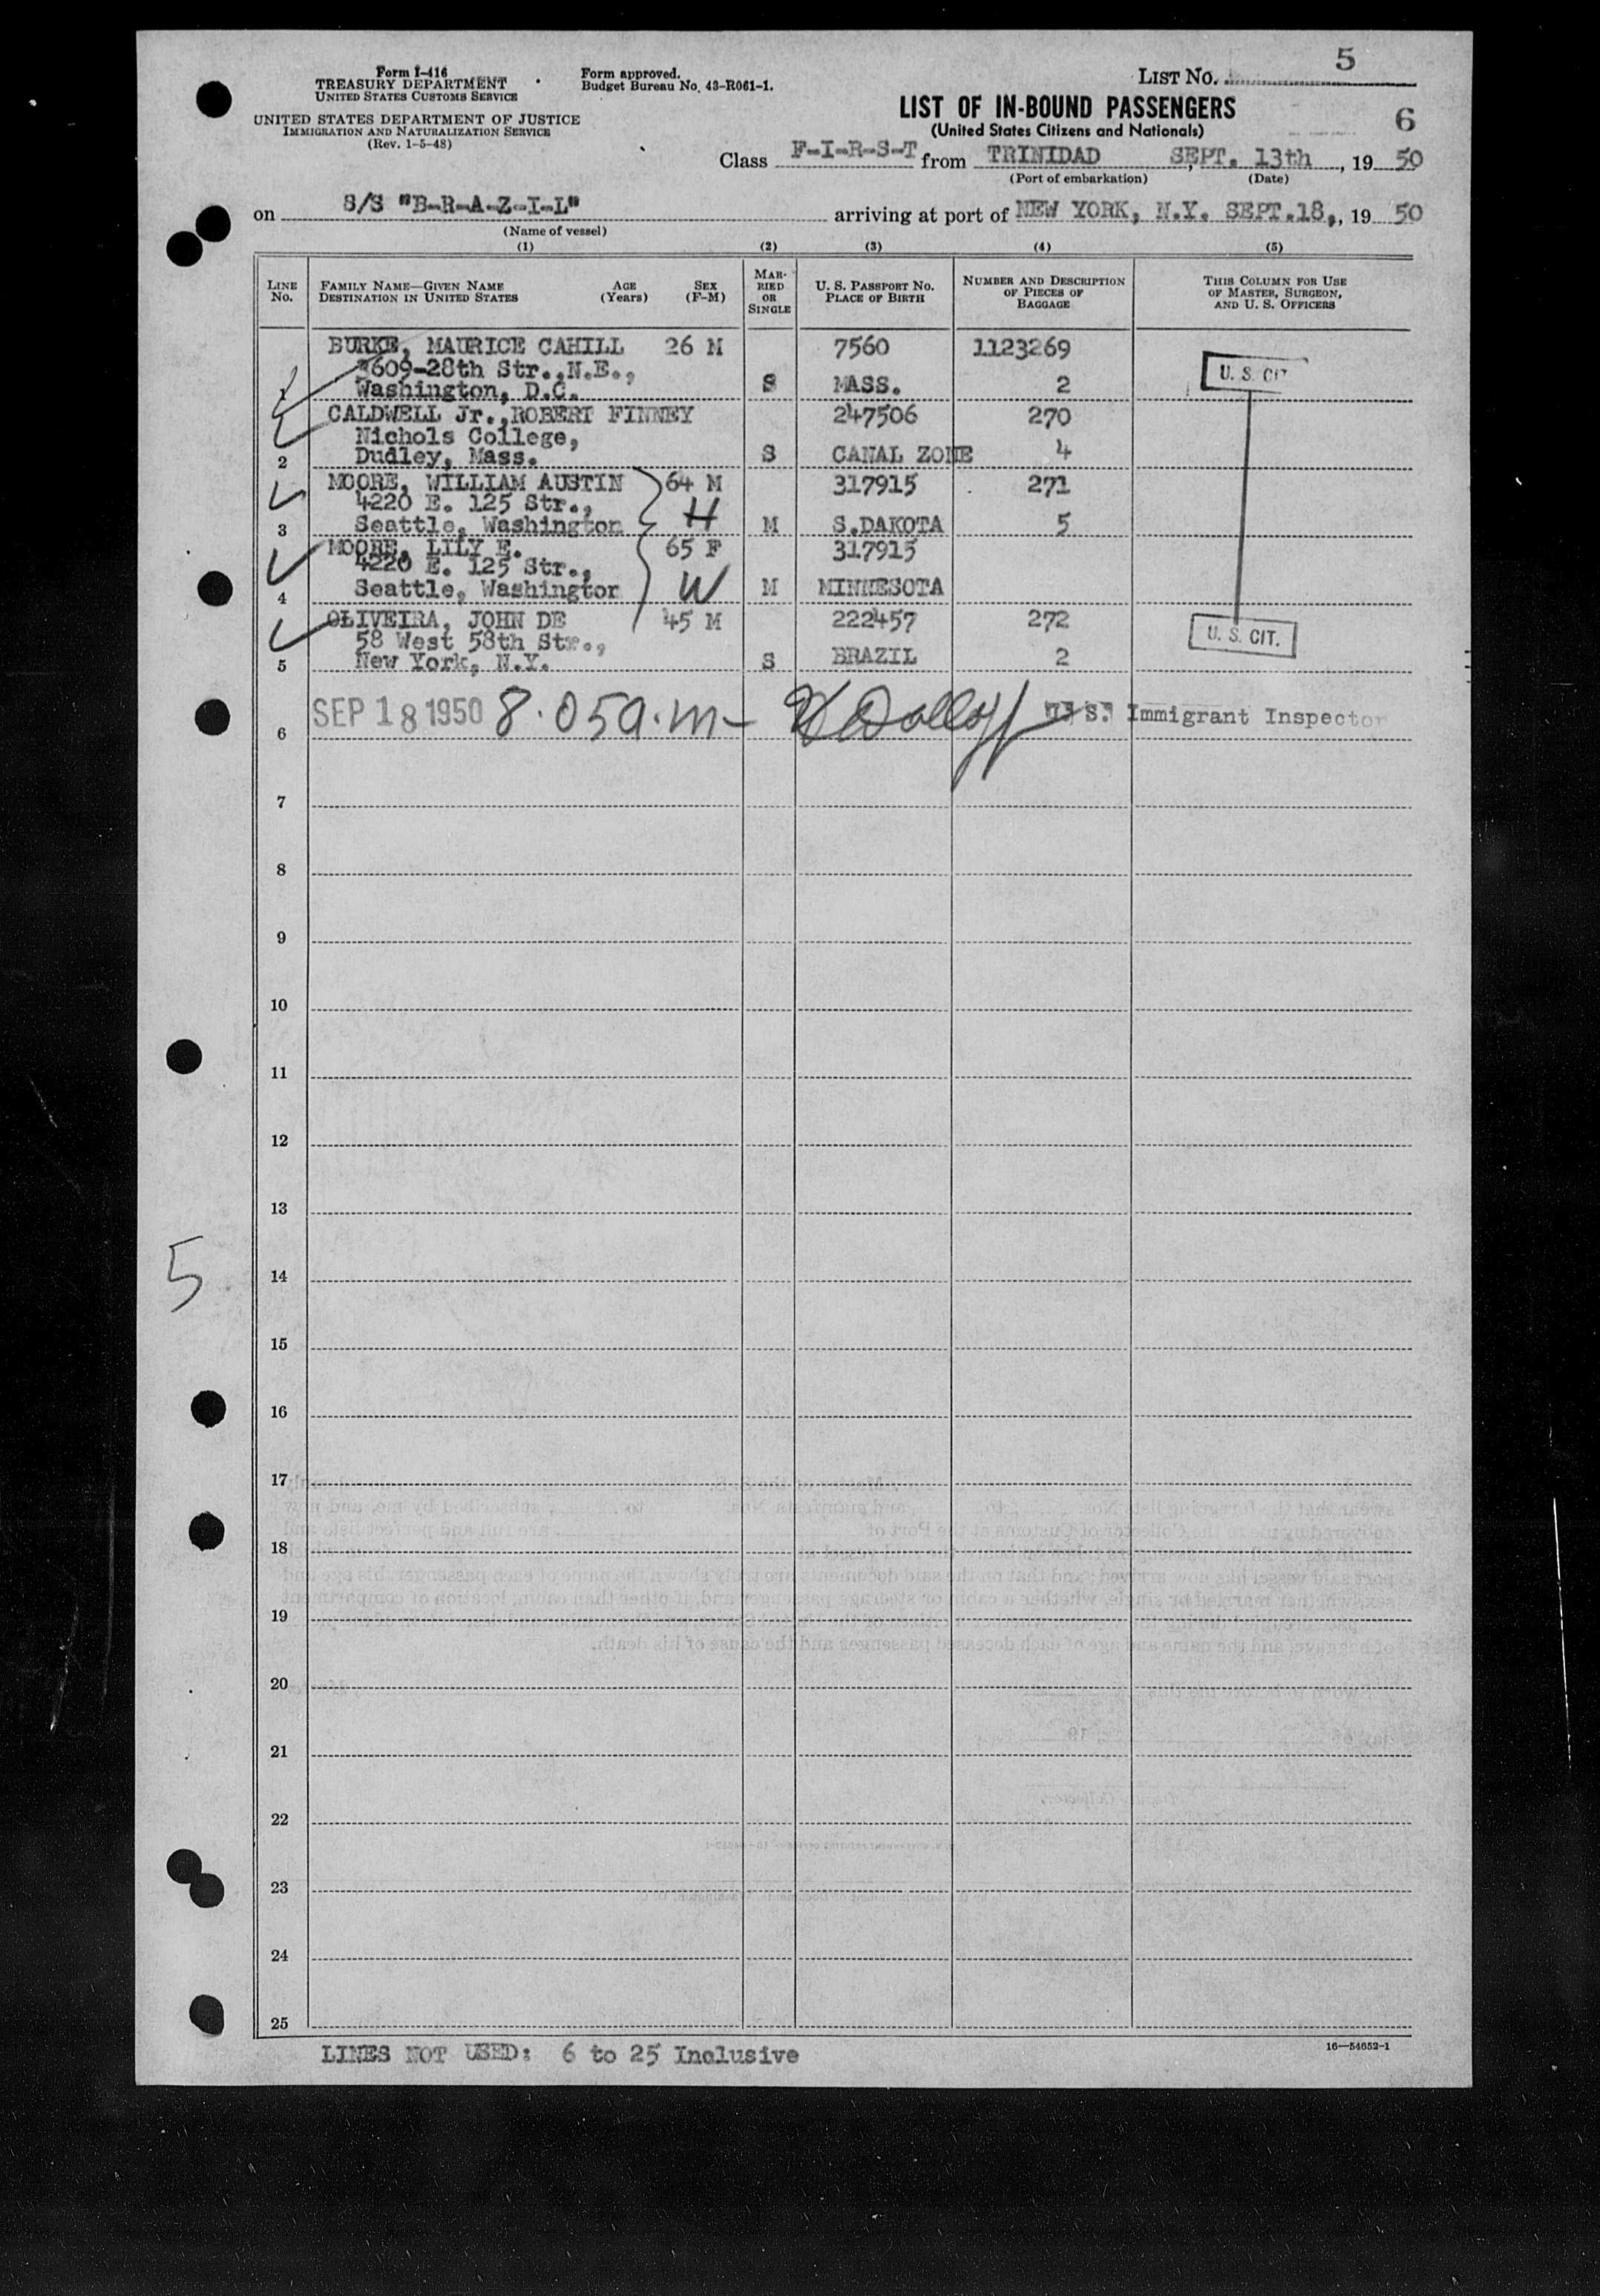 Form I-416
TREASURY DEPARTMENT
UNITED STATES CUSTOMS SERVICE
UNITED STATES DEPARTMENT OF JUSTICE
IMMIGRATION AND NATURALIZATION SERVICE
(Rev. 1-5-48)
Form approved.
Budget Bureau No. 43-R061-1.
LIST NO. 5
LIST OF IN-BOUND PASSENGERS
(United States Citizens and Nationals)
6
Class F-I-R-S-T from TRINIDAD, SEPT. 13th, 19 50
(Port of embarkation) (Date)
on S/S "B-R-A-Z-I-L" arriving at port of NEW YORK, N.Y. SEPT.18,, 19 50
(Name of vessel)
(1) (2) (3) (4) (5)
LINE NO. FAMILY NAME—GIVEN NAME DESTINATION IN UNITED STATES AGE (Years) SEX (F-M) MARRIED OR SINGLE U. S. PASSPORT NO. PLACE OF BIRTH NUMBER AND DESCRIPTION OF PIECES OF BAGGAGE THIS COLUMN FOR USE OF MASTER, SURGEON, AND U. S. OFFICERS
BURKE, MAURICE CAHILL 26 M 7560 1123269
609-28th Str.,N.E., U. S. CIT
1 Washington, D.C. S MASS. 2
CALDWELL Jr.,ROBERT FINNEY 247506 270
Nichols College,
2 Dudley, Mass. S CANAL ZONE 4
MOORE, WILLIAM AUSTIN 64 M 317915 271
4220 E. 125 Str., H
3 Seattle, Washington M S.DAKOTA 5
MOORE, LILY E. 65 F 317915
4220 E. 125 Str.,
4 Seattle, Washington W M MINNESOTA
OLIVEIRA, JOHN DE 45 M 222457 272
58 West 58th Str., U. S. CIT.
5 New York, N.Y. S BRAZIL 2
6 SEP 18 1950 8.05a.m- U. S. Immigrant Inspector
7
8
9
10
11
12
13
14
5
15
16
17
18
19
20
21
22
23
24
25
LINES NOT USED: 6 to 25 Inclusive
16—54652-1